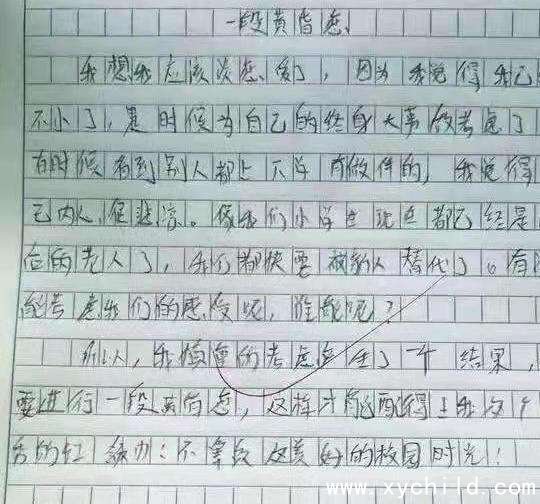 一段黄昏恋
我想我应该谈恋爱了，因为我觉得我已
不小了，是时候为自己的终身大事做考虑了
有时候看到别人都上下学有做伴的，我觉得
己内人很悲凉。像我们小学生现在都已经是
后的老人了，我们都快要被别人替代了。有
能考虑我们的感受呢，谁能呢？
所以，我慎重的考虑产生了一个结果，
要进行一段黄昏恋，这样才能配得上我这个
的红领巾：不辜负这美好的校园时光！
www.xychild.com